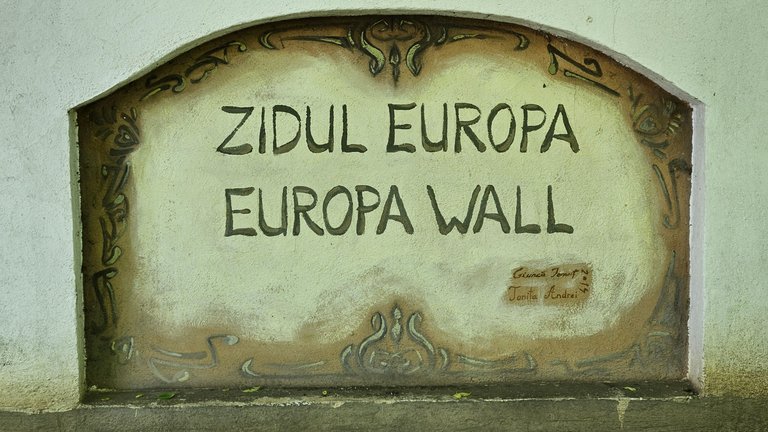 ZIDUL EUROPA
EUROPA WALL
Ionuț 2014
Ioniță Andrei